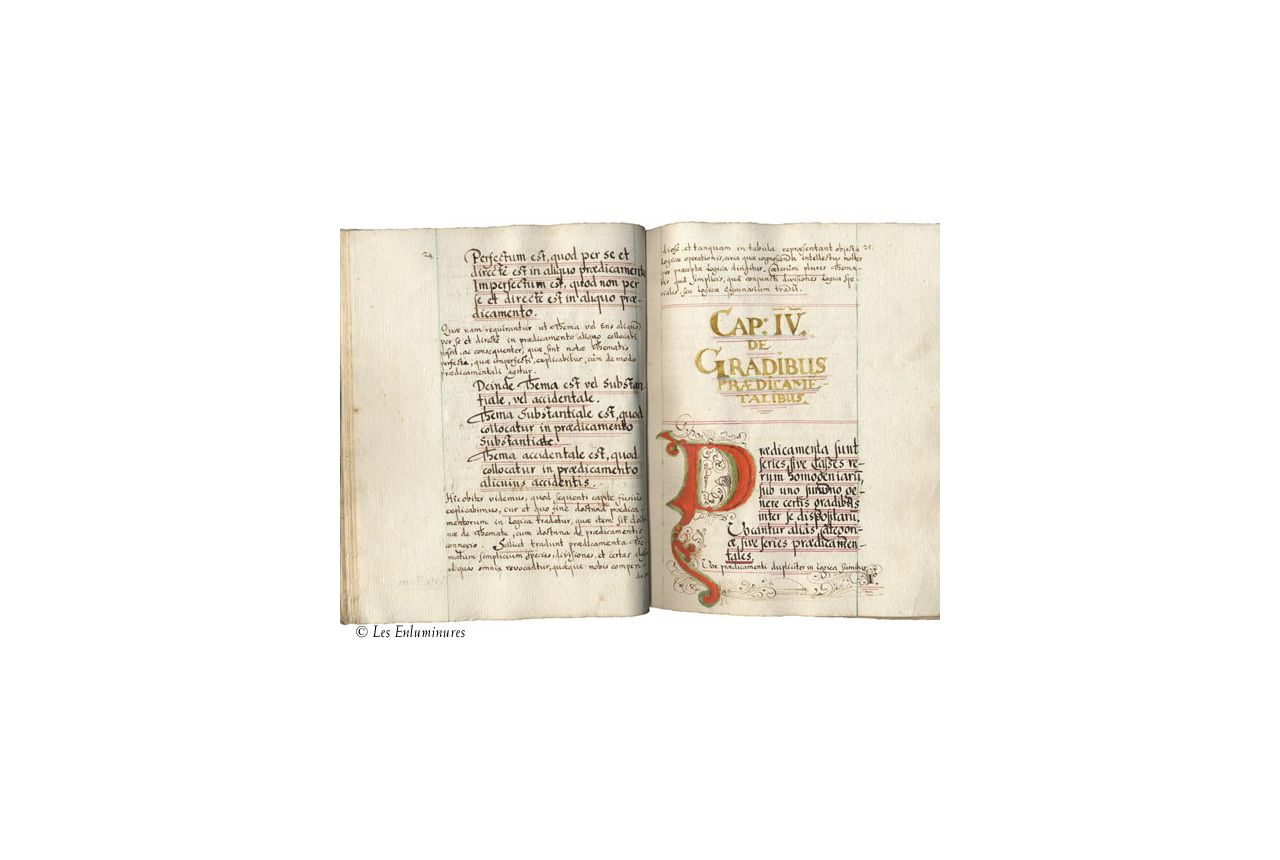 24.
Perfectum est, quod per se et
directè est in aliquo prædicamento
Imperfectum est, quod non per
se et directè est in aliquo præ-
dicamento.
Quæ nam requirantur ut Thema vel Ens aliquod
per se et directè in prædicamento aliquo collocari
possit, ac consequenter, quæ sint notæ Thematis
perfecti, quæ imperfecti, explicabitur, cùm de modo
prædicamentali agitur.
Deinde Thema est vel Substan-
tiale, vel accidentale.
Thema Substantiale est, quod
collocatur in prædicamento
Substantiæ.
Thema accidentale est, quod
collocatur in prædicamento
alicuius accidentis.
Hic obiter videmus, quod sequenti capite fusius
explicabimus, cur et quo fine doctrina prædica-
mentorum in Logica tradatur, quæ item sit
næ de Themate, cum doctrina de prædicamentis
connexio. Scilicet tradunt prædicamenta The-
matum simplicium species, divisiones, et certas
ad quas omnia revocantur, quæque nobis compen-
25.
diosè, et tanquam in tabula repræsentant objecta
Logicæ operationis, circa quæ cognoscenda intellectus noster
per præcepta Logica dirigitur. Cæterum plures Thema-
tis quà simplicis, quà conjuncti divisiones Logica Spe-
cialis, seu Logicæ Gymnasium tradit.
CAP. IV.
DE
GRADIBUS
PRÆDICAMĒ-
TALIBUS.
Prædicamenta sunt
series, sive classes re-
rum homogeniarū,
sub uno summo ge-
nere certis gradibus
inter se dispositarū.
Vocantur aliàs categori-
æ, sive series prædicamen-
tales.
Vox prædicamenti dupliciter in Logica sumitur
© Les Enluminures